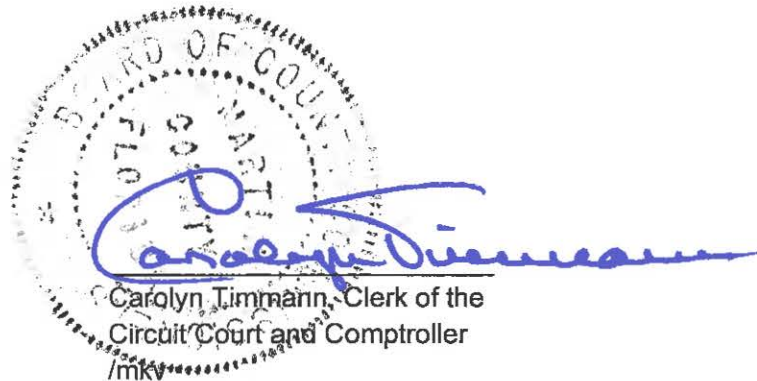 BOARD OF COUN
MARTI
COUNTY
FLO
Carolyn Timmann
Carolyn Timmann, Clerk of the
Circuit Court and Comptroller
/mkv